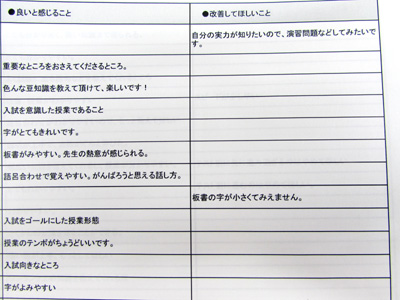 ●良いと感じること
●改善してほしいこと
自分の実力が知りたいので、演習問題などしてみたいで
す。
重要なところをおさえてくださるところ。
色んな豆知識を教えて頂けて、楽しいです！
入試を意識した授業であること
字がとてもきれいです。
板書がみやすい。先生の熱意が感じられる。
語呂合わせで覚えやすい。がんばろうと思える話し方。
板書の字が小さくてみえません。
入試をゴールにした授業形態
授業のテンポがちょうどいいです。
入試向きなところ
字がよみやすい